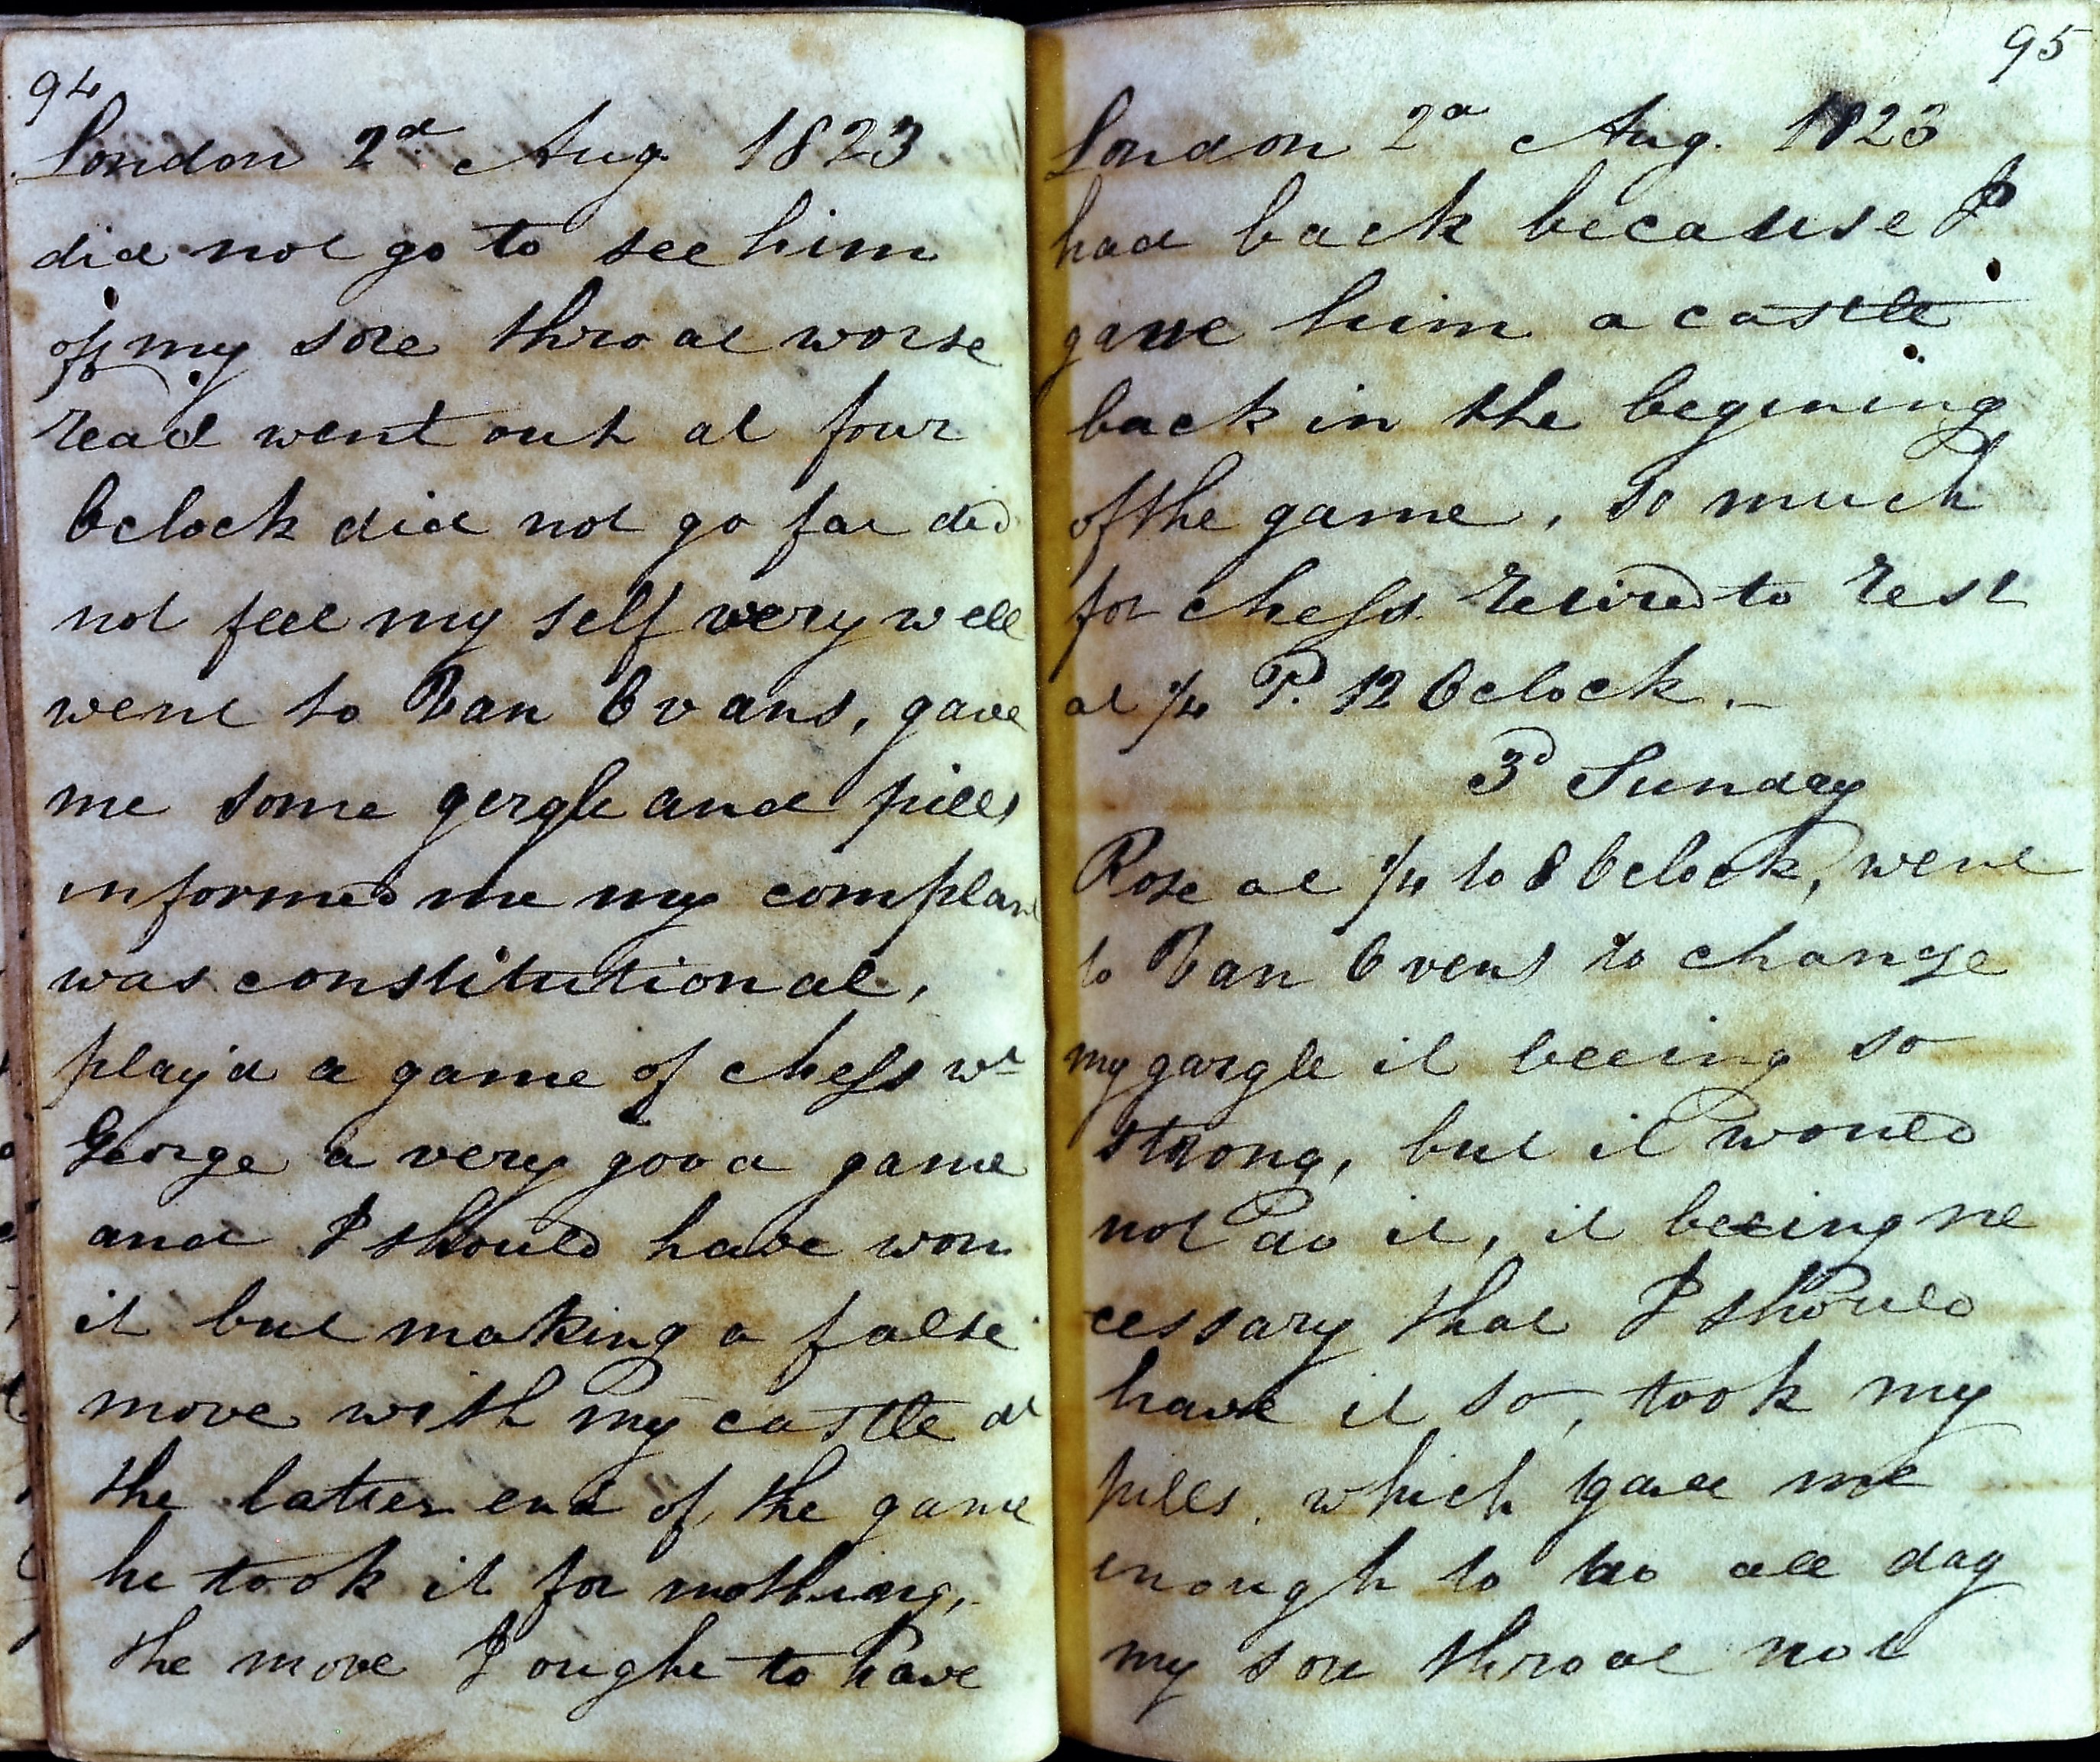 94
London 2d Aug 1823.
did not go to see him
off my sore throat worse
read went out at four
Oclock did not go far did
not feel my self very well
went to Van Evans, gave
me some gergle and pills
informed me my complant
was constitutional,
play'd a game of chess wt
George a very good game
and I should have won
it but making a false
move with my castle at
the latter end of the game
he took it for nothing,
the move I ought to have
95
London 2d Aug. 1823
had back because I
gave him a castle
back in the begining
of the game, so much
for chess. retired to rest
at 1/4 P. 12 Oclock.-
3d Sunday
Rose at 1/4 to 8 Oclock, went
to Van Evens to change
my gargle it beeing so
strong, but it would
not do it, it beeing ne
cessary that I should
have it so, took my
pills, which gave me
enough to do all day
my sore throat not